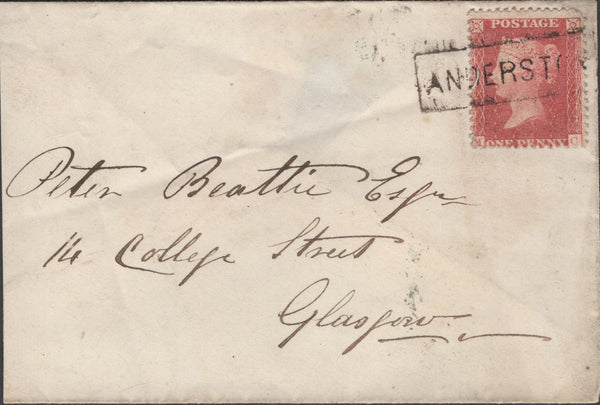 POSTAGE
ANDERST
ONE PENNY
Peter Beattie Esqr
14 College Street
Glasgow